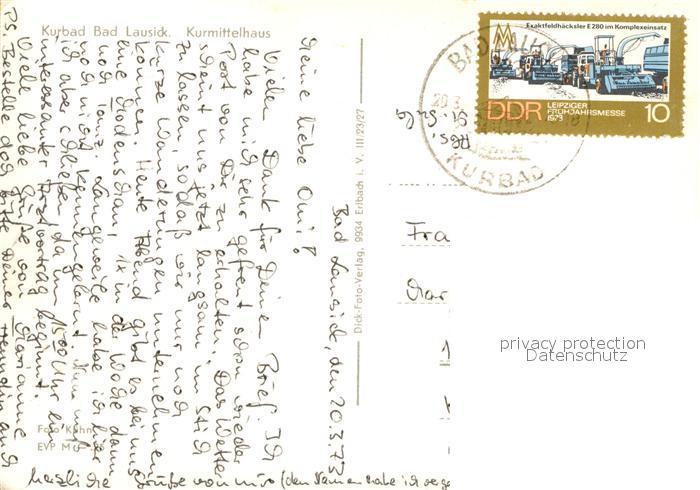 Kurbad Bad Lausick. Kurmittelhaus
Bad Lausick, den 20.3.73
Meine liebe Omi!
Vielen Dank für Deinen Brief. Ich
habe mich sehr gefreut schon wieder
Post von Dir zu erhalten. Das Wetter
scheint uns jetzt langsam im Stich
zu lassen, sodaß wir nur noch
kurze Wanderungen unternehmen
können. Heute Abend gibt es bei uns
eine Modenschau, 1x in der Woche dann
noch Tanz. Langeweile habe ich hier
noch nicht kennengelernt. Nun muß
ich aber schließen, da um 15.00 Uhr ein
interessanter Arztvortrag beginnt.
Viele liebe Grüße von Marianne
PS. Bestelle doch bitte Deiner Freundin auch
herzliche Grüße von mir (den Namen habe ich
Foto Kühn
EVP M
Dick-Foto-Verlag, 9934 Erlbach i. V. III/23/27
Exaktfeldhäcksler E 280 im Komplexeinsatz
MM
DDR
LEIPZIGER
FRÜHJAHRSMESSE
1973
10
BAD
20.3.
KURBAD
Fra
privacy protection
Datenschutz